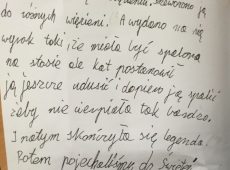 do różnych więzieni. A wydano na nią
wyrok taki, że miała być spalona
na stosie ale kat postanowił
ją jeszcze udusić i dopiero ją spalić
żeby nie cierpiała tak bardzo.
I na tym skończyła się legenda.
Potem pojechaliśmy do